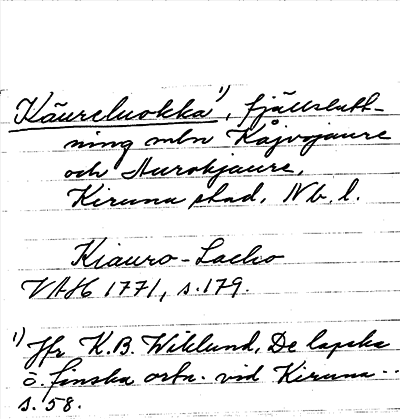 Käureluokka¹⁾, fjällslutt-
ning mln Kåjvojaure
och Aurokjaure,
Kiruna stad, Nb. l.
Kiauro-Lacko
VAH 1771, s. 179.
¹⁾ Jfr K.B. Wiklund, De lapska
o. finska ortn. vid Kiruna..
s. 58.